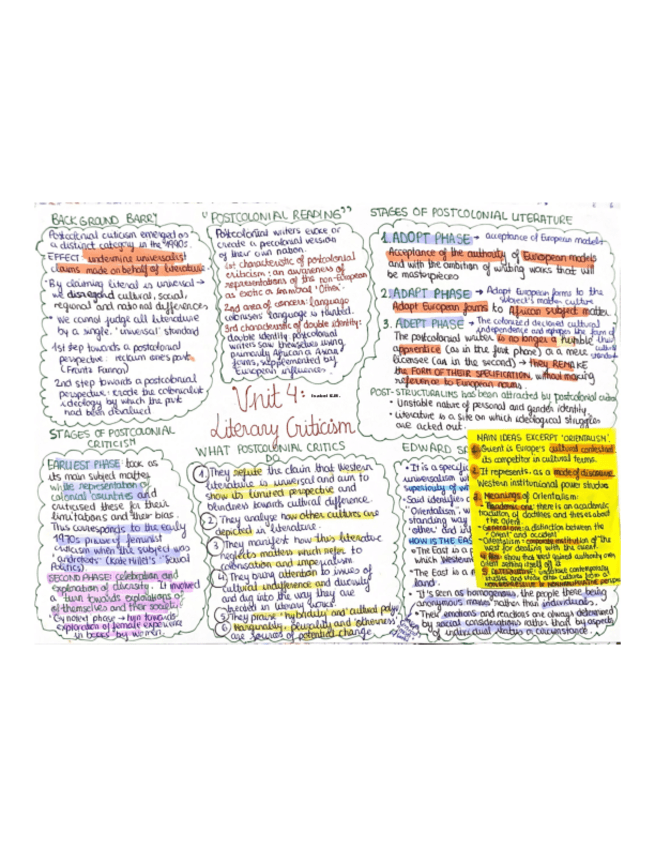 BACKGROUND BARRY
Postcolonial criticism emerged as
a distinct category in the 1990s.
EFFECT: undermine universalist
claims made on behalf of literature.
· By claiming literat. is universal →
we disregard cultural, social,
regional and national differences
· We cannot judge all literature
by a single, 'universal' standard
1st step towards a postcolonial
perspective: reclaim one's past
(Frantz Fannon)
2nd step towards a postcolonial
perspective: erode the colonialist
ideology by which the past
had been devalued
"POSTCOLONIAL READING"
Postcolonial writers evoke or
create a precolonial version
of their own nation.
1st characteristic of postcolonial
criticism: an awareness of
representations of the non-European
as exotic or immoral 'Other'.
2nd area of concern: language
colonisers' language is tainted.
3rd characteristic of double identity:
double identity postcolonial
writers saw themselves using
primarily African or Asian
forms, supplemented by
European influences.
STAGES OF POSTCOLONIAL LITERATURE
1. ADOPT PHASE → acceptance of European models
Acceptance of the authority of European models
and with the ambition of writing works that will
be masterpieces
2. ADAPT PHASE → Adapt European forms to the
subject's matter culture
Adapt European forms to African subject matter
3. ADEPT PHASE → The colonized declared cultural
independence and
The postcolonial writer is no longer a humble
apprentice (as in the first phase) or a mere
licensee (as in the second) → they REMAKE
the FORM OF THEIR SPECIFICATION, without making
reference to European norms.
POST-STRUCTURALISM has been attracted by postcolonial
· Unstable nature of personal and gender identity
· Literature is a site on which ideological struggles
are acted out.
Unit 4:
Literary Criticism
STAGES OF POSTCOLONIAL
CRITICISM
EARLIEST PHASE: took as
its main subject matter
white representations of
colonial countries and
criticised these for their
limitations and their bias.
This corresponds to the early
1970s phase of feminist
criticism when the subject was
androtexts (Kate Millet's 'Sexual
Politics')
SECOND PHASE: celebration and
exploration of diversity. It involved
a turn towards explorations of
of themselves and their society.
phase → turn towards
exploration of female experience
in books by women.
WHAT POSTCOLONIAL CRITICS
DO
1. They refute the claim that Western
literature is universal and aim to
show its limited perspective and
blindness towards cultural difference.
2. They analyse how other cultures are
depicted in literature.
3. They manifest how this literature
neglects matters which refer to
colonisation and imperialism
4. They bring attention to issues of
cultural indifference and diversity
and dig into the way they are
treated in literary works.
5. They praise 'hybridity' and 'cultural
6. Marginality, plurality and 'otherness'
are sources of potential change.
EDWARD
· It is a specific
universalism
superiority of
Said identifies
'Orientalism',
standing way
'other' and
HOW IS THE EAST
· The East is a
which Western
· The East is a
land.
· It's seen as homogenous, the people there being
anonymous masses rather than individuals.
· Their emotions and reactions are always determined
by racial considerations rather than by aspects
of individual status or circumstance.
MAIN IDEAS EXCERPT 'ORIENTALISM'.
1. Orient is Europe's cultural contestant
its competitor in cultural terms.
2. It represents, as a mode of discourse
Western institutional power studies
3. Meanings of Orientalism:
· Academic one: there is an academic
tradition of doctrines and thesis about
the Orient
· General one: a distinction between the
"Orient" and occident
· Orientalism: corporate institution of the
west for dealing with the orient